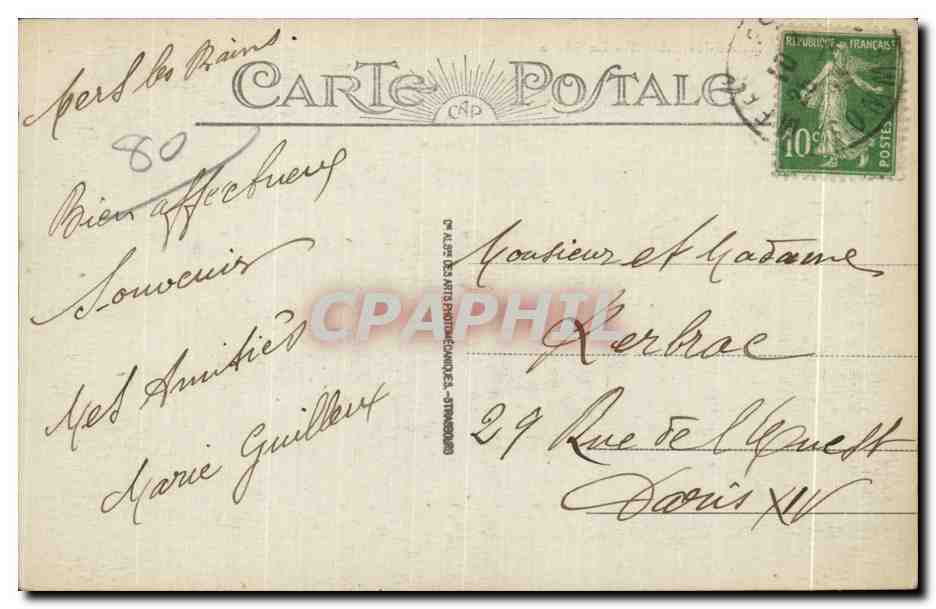 Mers les Bains.
80
CARTE POSTALE
CAP
REPUBLIQUE FRANÇAISE
10c
POSTES
Bien affectueux
Souvenir
Mes Amitiés
Marie Guilleux
Cie ALSne DES ARTS PHOTOMÉCANIQUES.-STRASBOURG
Monsieur et Madame
Kerbrac
29 Rue de l'Ouest
Paris XIV
CPAPHIL